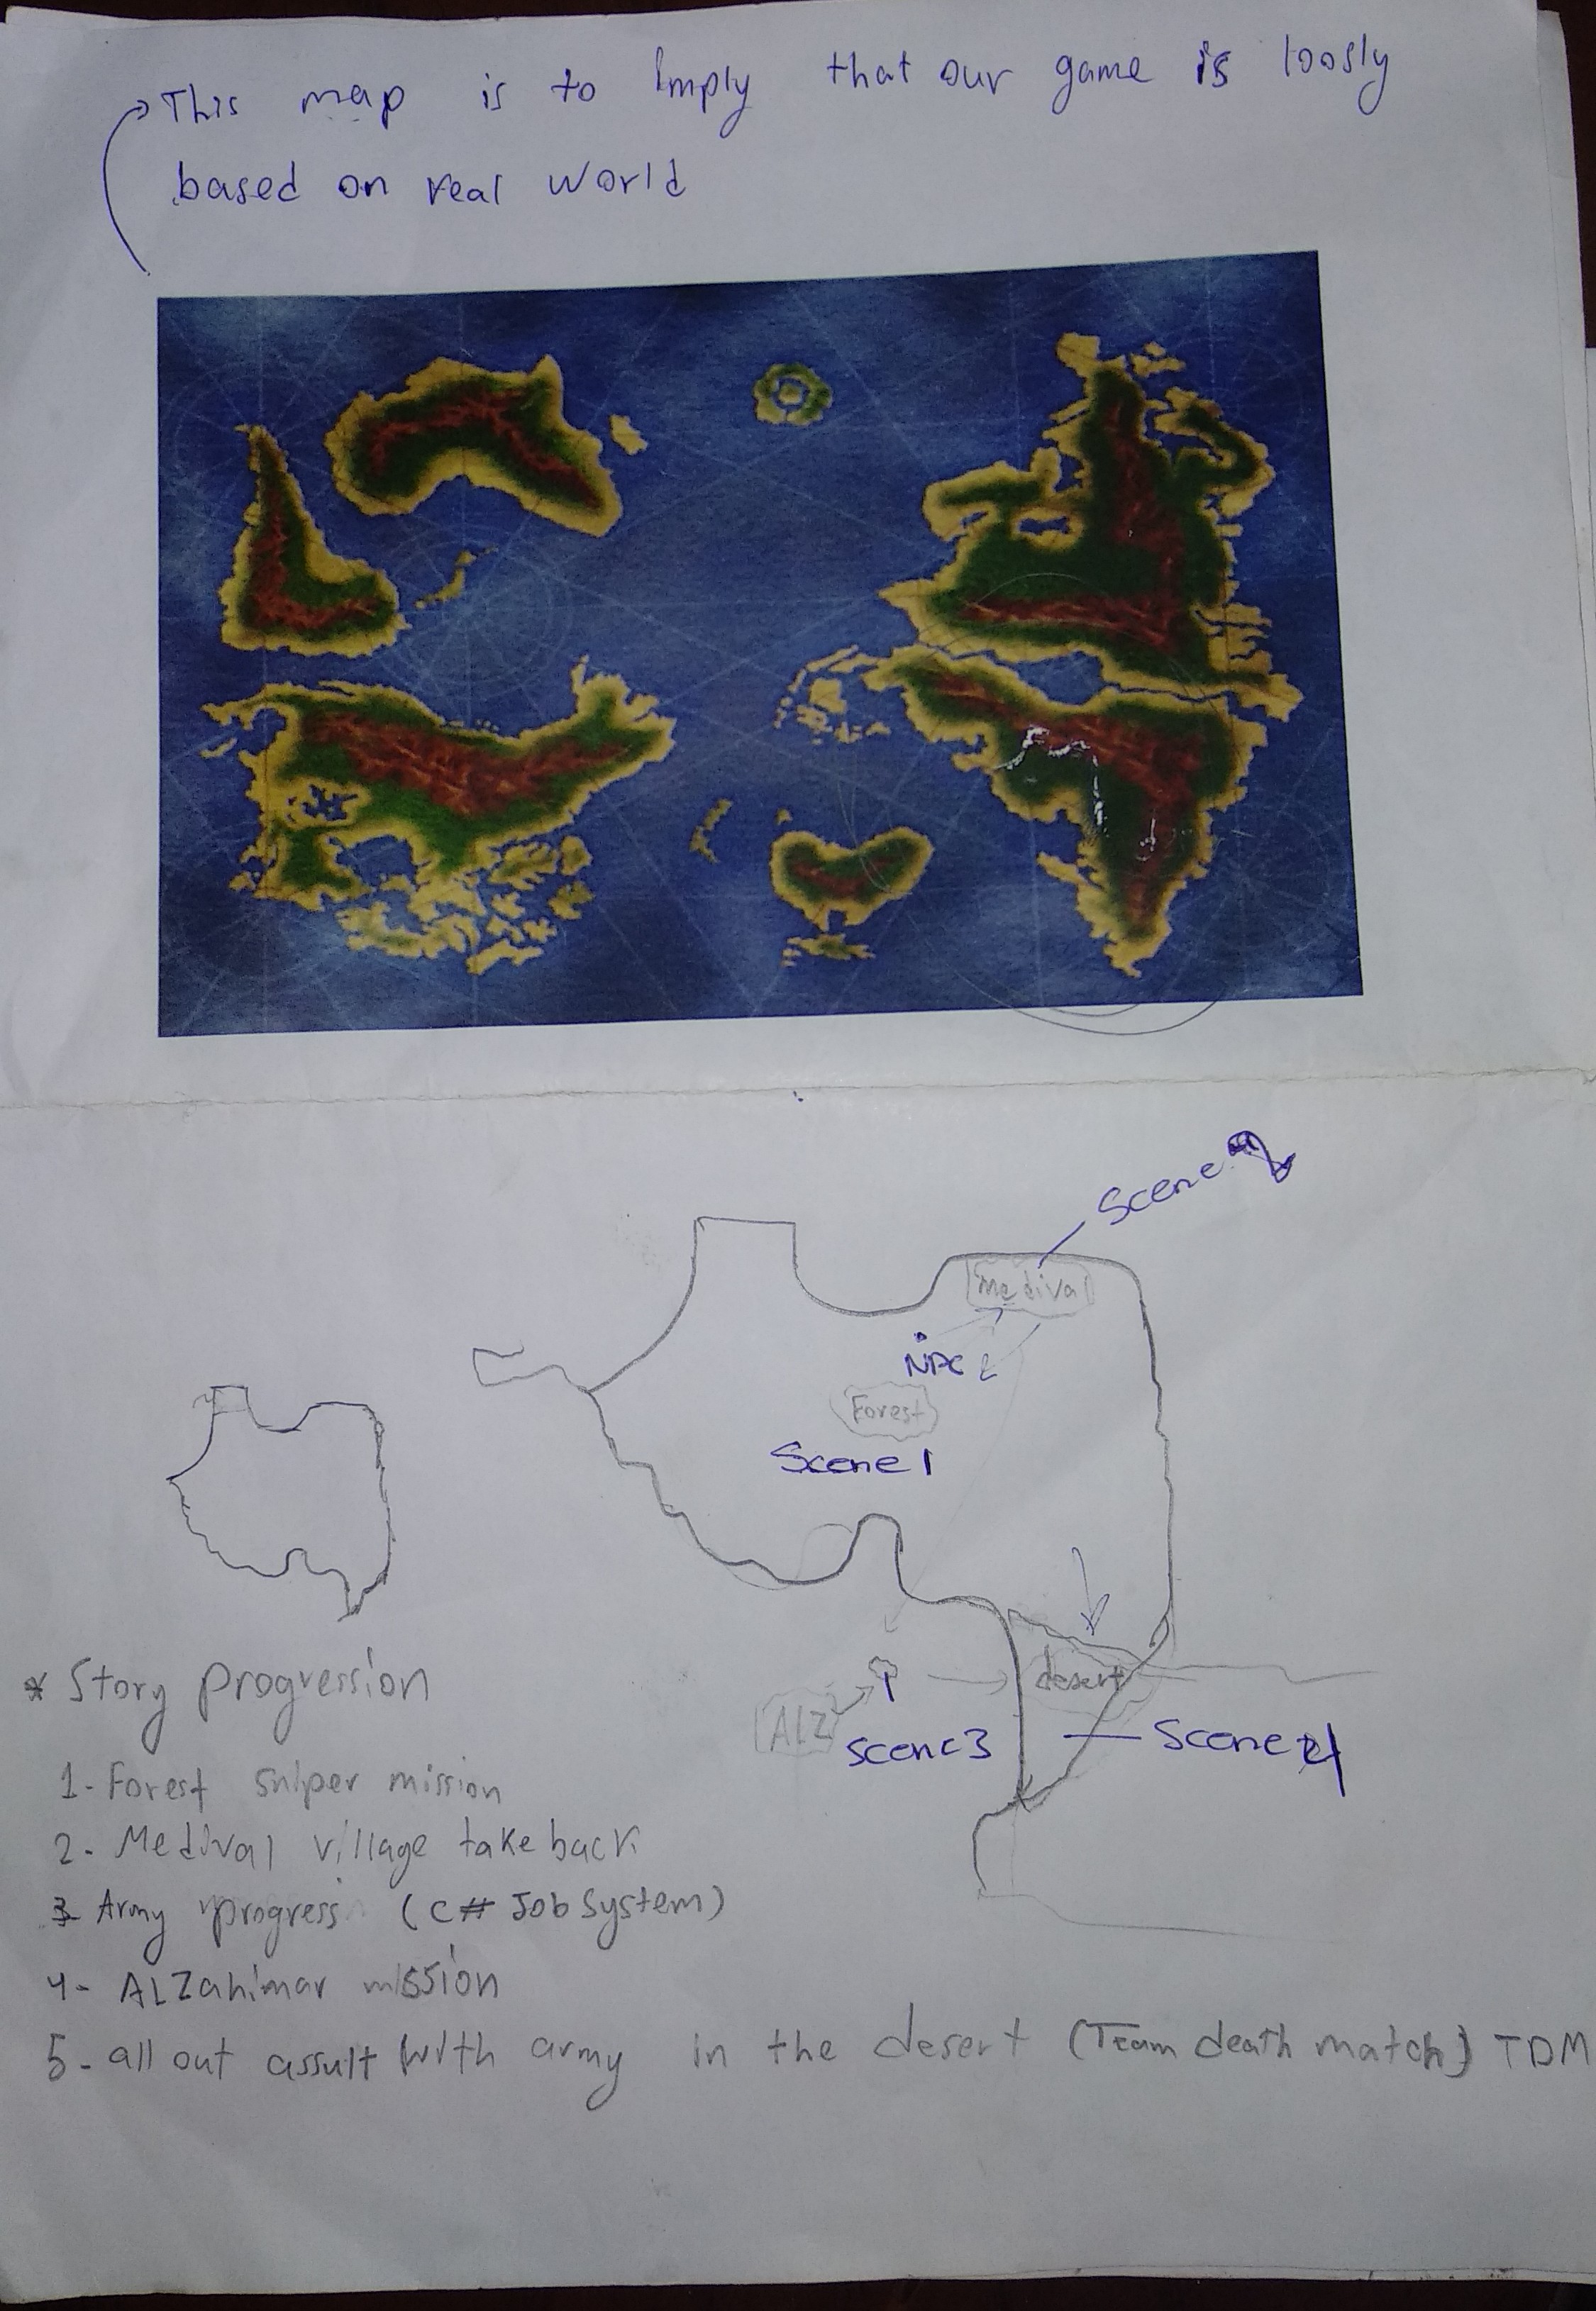 This map is to Imply that our game is loosly
based on real world
Scene 2
Medival
NPC
Forest
Scene 1
desert
ALZ
Scene 3
Scene 4
* Story progression
1- Forest sniper mission
2- Medival village take back
3- Army progress (C# Job System)
4- ALZahimar mission
5- all out assult with army in the desert (Team death match) TDM